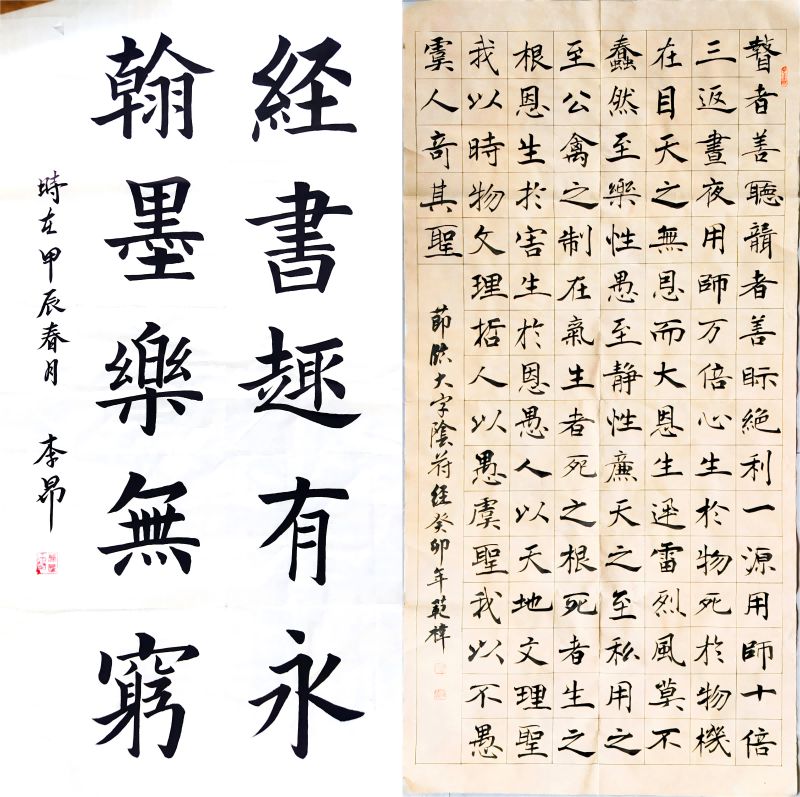 経書趣有永
翰墨樂無窮
時在甲辰春月 李昂
瞽者善聽聾者善眎絶利一源用師十倍
三返晝夜用師万倍心生於物死於物機
在目天之無恩而大恩生迅雷烈風莫不
蠢然至樂性愚至静性廉天之至私用之
至公禽之制在氣生者死之根死者生之
根恩生於害生於恩愚人以天地文理聖
我以時物文理哲人以愚虞聖我以不愚
虞人奇其聖
莭臨大字陰符経癸卯年範樟